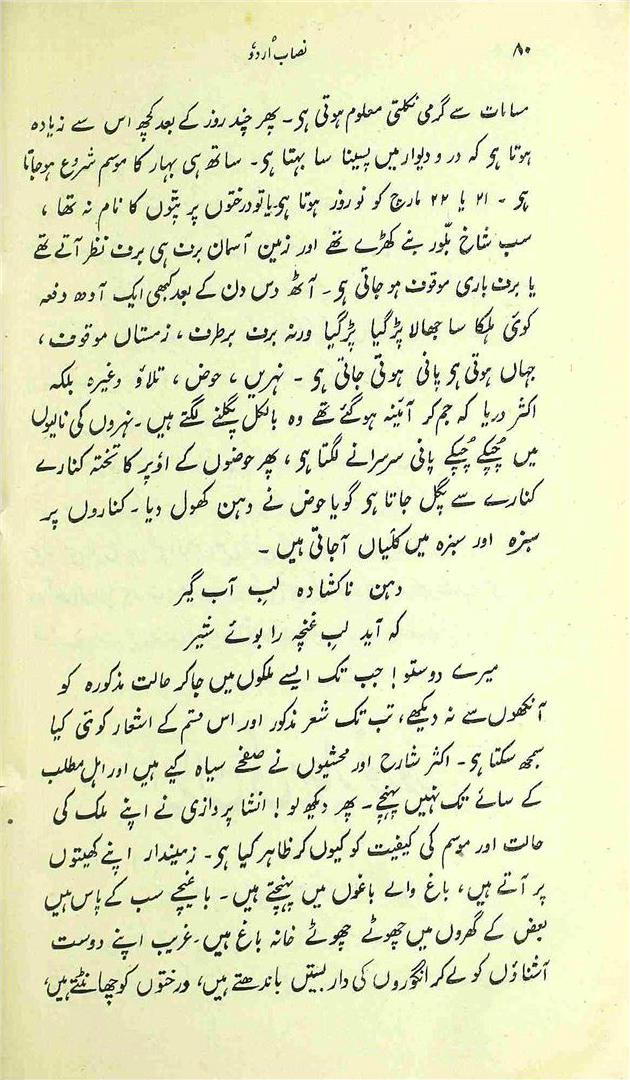 ۸۰ نصاب اُردو
مسامات سے گرمی نکلتی معلوم ہوتی ہی۔ پھر چند روز کے بعد کچھ اس سے زیادہ
ہوتا ہو کہ در و دیوار میں پسینا سا بہتا ہی۔ ساتھ ہی بہار کا موسم شروع ہو جاتا
ہی۔ ۲۱ یا ۲۲ مارچ کو نوروز ہوتا ہی یا تو درختوں پر پتّوں کا نام نہ تھا،
سب شاخِ بلّور بنے کھڑے تھے اور زمین آسمان برف ہی برف نظر آتے تھے
یا برف باری موقوف ہو جاتی ہی۔ آٹھ دس دن کے بعد کبھی ایک آدھ دفعہ
کوئی ہلکا سا جھالا پڑ گیا پڑ گیا ورنہ برف برطرف، زمستاں موقوف،
جہاں ہوتی ہی پانی ہوتی جاتی ہی۔ نہریں، حوض، تلاؤ وغیرہ بلکہ
اکثر دریا کہ جم کر آئینہ ہو گئے تھے وہ بالکل پگلنے لگتے ہیں۔ نہروں کی نالیوں
میں چُپکے چُپکے پانی سرسرانے لگتا ہی، پھر حوضوں کے اوٗپر کا تختہ کنارے
کنارے سے پگل جاتا ہی گویا حوض نے دہن کھول دیا۔ کناروں پر
سبزہ اور سبزہ میں کلیاں آ جاتی ہیں۔
دہن ناکشادہ لبِ آب گیر
کہ آید لبِ غنچہ را بوئے شیر
میرے دوستو! جب تک ایسے ملکوں میں جا کر حالت مذکورہ کو
آنکھوں سے نہ دیکھے، تب تک شعر مذکور اور اس قسم کے اشعار کوئی کیا
سمجھ سکتا ہی۔ اکثر شارح اور محشیوں نے صفحے سیاہ کیے ہیں اور اہلِ مطلب
کے سائے تک نہیں پہنچے۔ پھر دیکھ لو! انشا پردازی نے اپنے ملک کی
حالت اور موسم کی کیفیت کو کیوں کر ظاہر کیا ہی۔ زمیندار اپنے کھیتوں
پر آتے ہیں، باغ والے باغوں میں پہنچتے ہیں۔ باغیچے سب کے پاس ہیں
بعض کے گھروں میں چھوٹے چھوٹے خانہ باغ ہیں۔ غریب اپنے دوست
آشناؤں کو لے کر انگوروں کی داربستیں باندھتے ہیں، درختوں کو چھانٹتے ہیں،